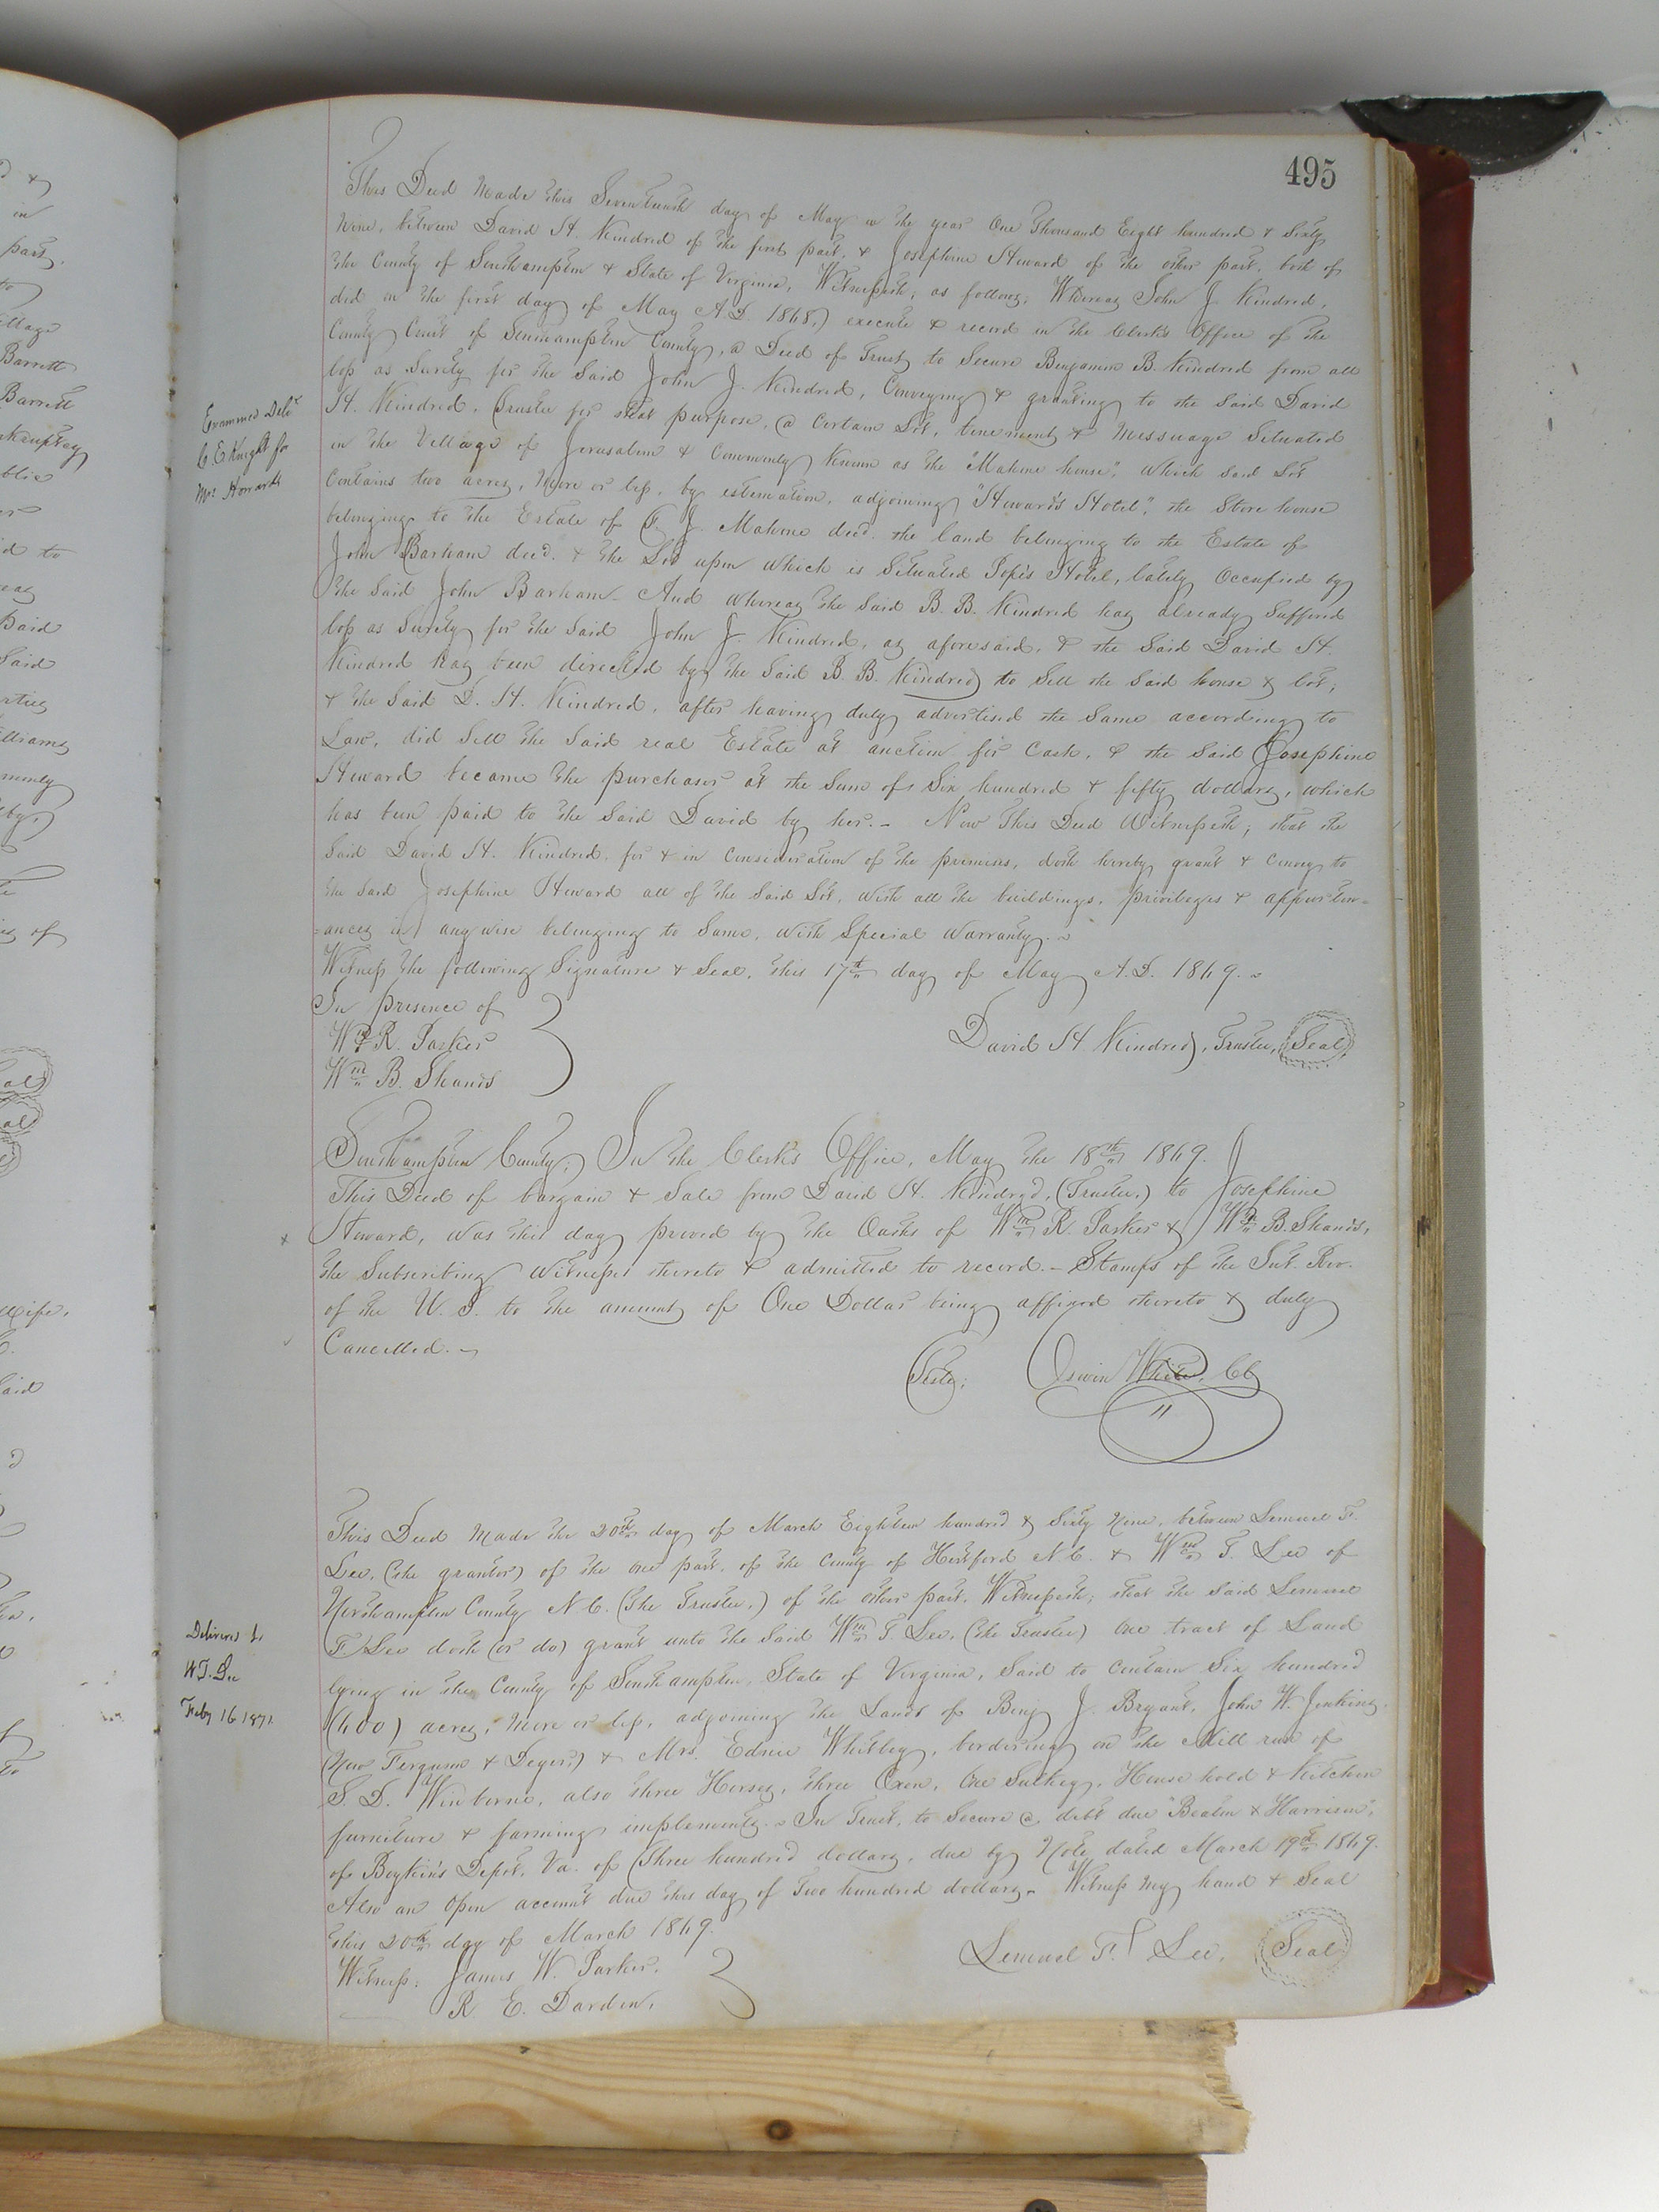 495
This Deed Made this Seventeenth day of May in the year One Thousand Eight hundred & Sixty
Nine, between David H. Kindred of the first part, & Josephine Howard of the other part, both of
the County of Southampton & State of Virginia, Witnesseth; as follows; Whereas John J. Kindred,
did on the first day of May A.D. 1868,) execute & record in the Clerk's Office of the
County Court of Southampton County, a Deed of Trust to Secure Benjamin B. Kindred from all
loss as Surety for the Said John J. Kindred, Conveying & granting to the Said David
H. Kindred, Trustee for that purpose, a Certain Lot, tenement & Messuage Situated
in the Village of Jerusalem & Commonly Known as the "Mahone house", which said Lot
Contains two acres, More or less, by estimation, adjoining "Howard's Hotel", the Store house
belonging to the Estate of F. J. Mahone decd. the land belonging to the Estate of
John Barham decd. & the Lot upon which is Situated Pope's Hotel, lately Occupied by
the Said John Barham - And whereas the Said B. B. Kindred has already Suffered
loss as Surety for the Said John J. Kindred, as aforesaid, & the Said David H.
Kindred has been directed by the Said B. B. Kindred to Sell the Said house & lot;
& the Said D. H. Kindred, after having duly advertised the Same according to
Law, did Sell the Said real Estate at auction for Cash, & the Said Josephine
Howard became the purchaser at the Sum of Six hundred & fifty dollars, which
has been paid to the Said David by her. - Now This Deed Witnesseth; that the
Said David H. Kindred, for & in Consideration of the premises, doth hereby grant & Convey to
the Said Josephine Howard all of the Said Lot, with all the buildings, privileges & appurten=
=ances in any wise belonging to Same, with Special Warranty. ~
Witness the following Signature & Seal, this 17th day of May A.D. 1869. ~
In presence of
Wm R. Parker
Wm B. Shands
David H. Kindred, Trustee, Seal
Examined Deld
C. E. Knight for
Mrs Howard
Southampton County; In the Clerk's Office, May the 18th 1869.
This Deed of bargain & Sale from David H. Kindred, (Trustee,) to Josephine
Howard, was this day proved by the Oaths of Wm R. Parker & Wm B. Shands,
the Subscribing Witnesses thereto & admitted to record. - Stamps of the Int. Rev.
of the U. S. to the amount of One Dollar being affixed thereto & duly
Cancelled. ~
Teste; White, CC
This Deed Made the 20th day of March Eighteen hundred & Sixty Nine, between Lemuel F.
Lee, (the grantor) of the one part, of the County of Hertford N.C. & Wm T. Lee of
Northampton County N.C. (the Trustee,) of the other part, Witnesseth; that the Said Lemuel
F. Lee doth (or do) grant unto the Said Wm T. Lee, (the Trustee) One tract of Land
lying in the County of Southampton, State of Virginia, Said to Contain Six hundred
(600) acres, More or less, adjoining the Lands of Benj J. Bryant, John W. Jenkins,
(Now Ferguson & ) & Mrs. Whitley, bordering on the Mill run of
S. D. Winborne, also three Horses, three Oxen, One Sulkey, House hold & Kitchen
furniture & farming implements. ~ In Trust, to Secure a debt due "Beaton & Harrison",
of Boykin's Depot, Va. of Three hundred dollars, due by Note dated March 19th 1869.
Also an Open account due this day of Two hundred dollars. Witness My hand & Seal
this 20th day of March 1869.
Witness: James W. Parker,
R. E. Darden,
Lemuel F. Lee, Seal
Delivered to
W.T. Lee
Feby 16 1871